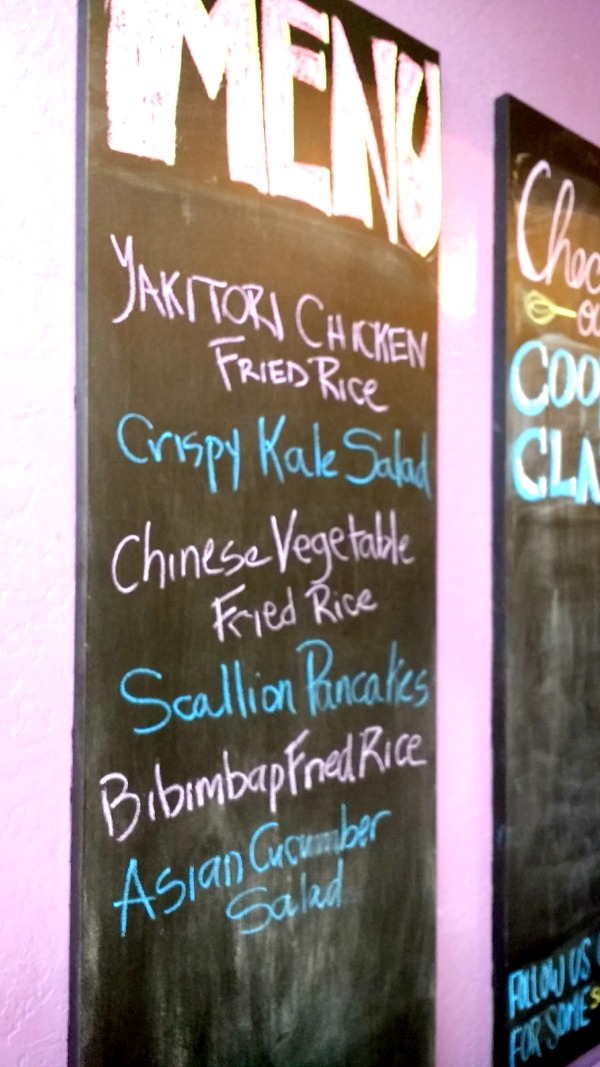 MENU
YAKITORI CHICKEN
FRIED RICE
Crispy Kale Salad
Chinese Vegetable
Fried Rice
Scallion Pancakes
Bibimbap Fried Rice
Asian Cucumber
Salad
FOLLOW US
FOR SOME